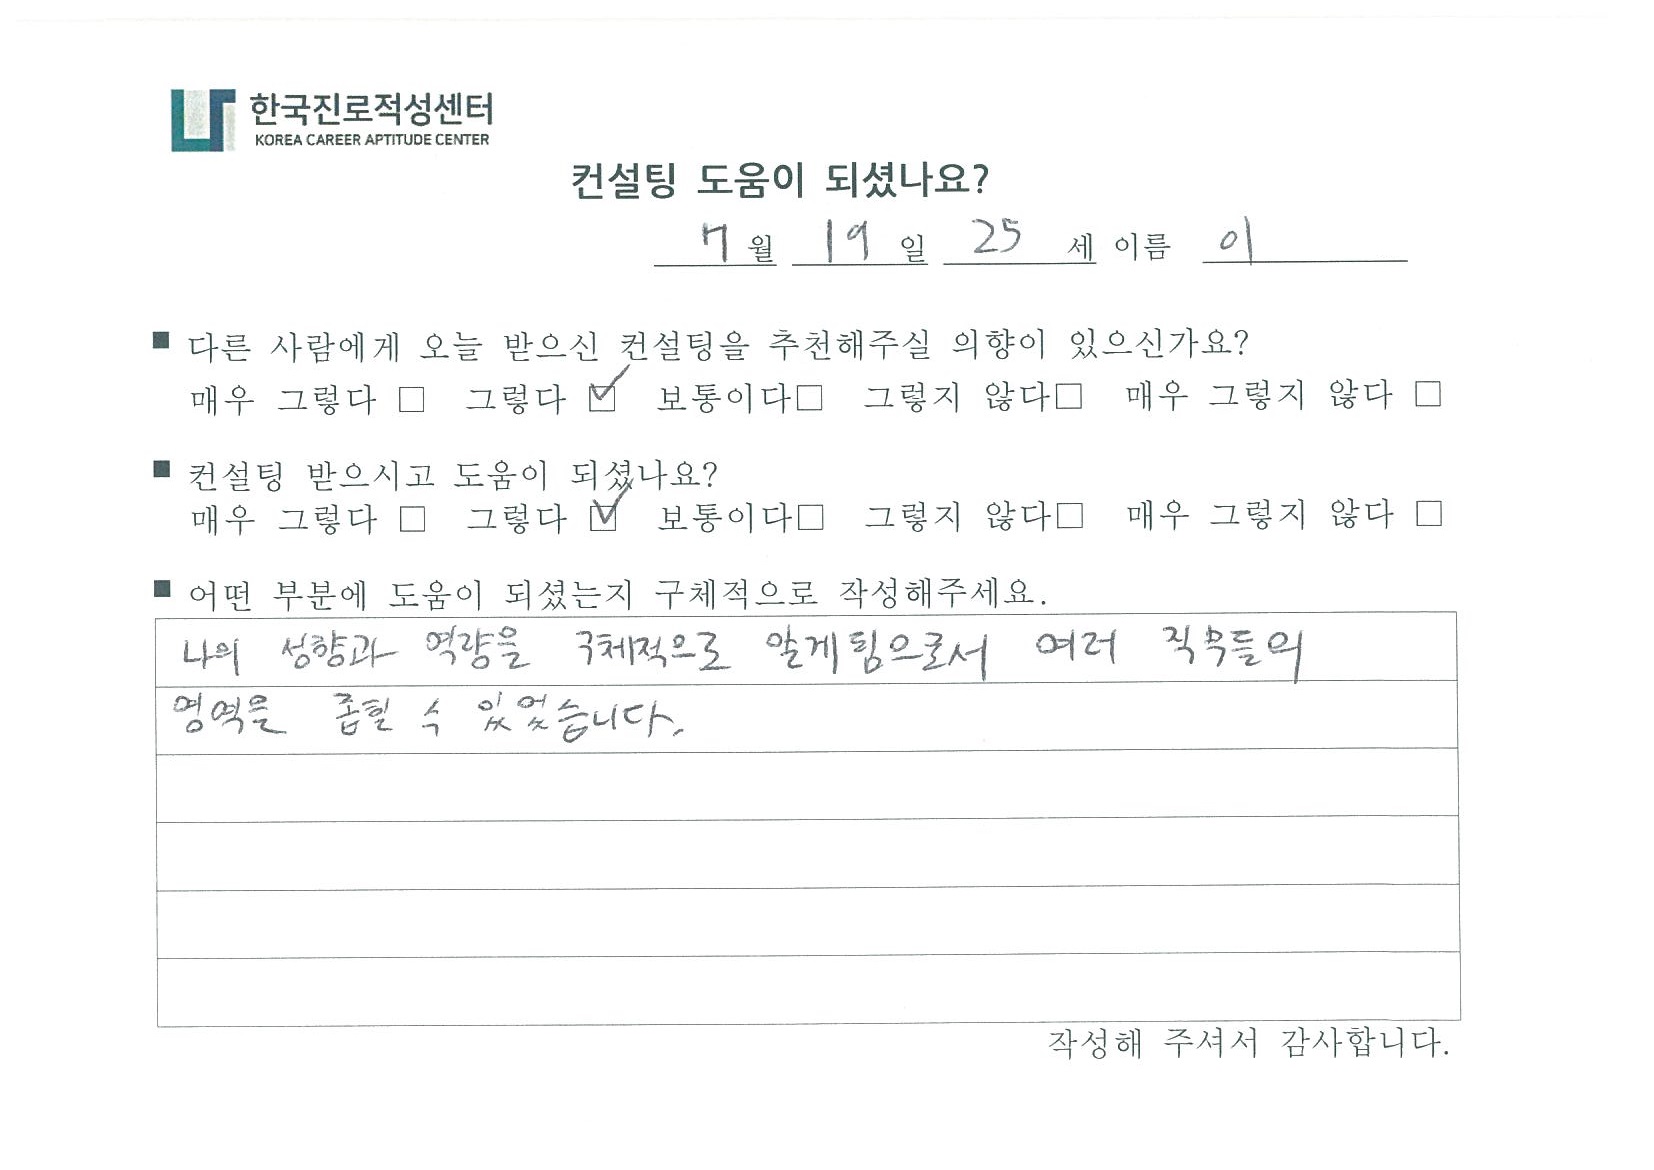 한국진로적성센터
KOREA CAREER APTITUDE CENTER
컨설팅 도움이 되셨나요?
7 월 19 일 25 세 이름 이
■ 다른 사람에게 오늘 받으신 컨설팅을 추천해주실 의향이 있으신가요?
매우 그렇다 □ 그렇다 ☑ 보통이다□ 그렇지 않다□ 매우 그렇지 않다 □
■ 컨설팅 받으시고 도움이 되셨나요?
매우 그렇다 □ 그렇다 ☑ 보통이다□ 그렇지 않다□ 매우 그렇지 않다 □
■ 어떤 부분에 도움이 되셨는지 구체적으로 작성해주세요.
나의 성향과 역량을 구체적으로 알게됨으로서 여러 직무들의
영역을 좁힐 수 있었습니다.
작성해 주셔서 감사합니다.